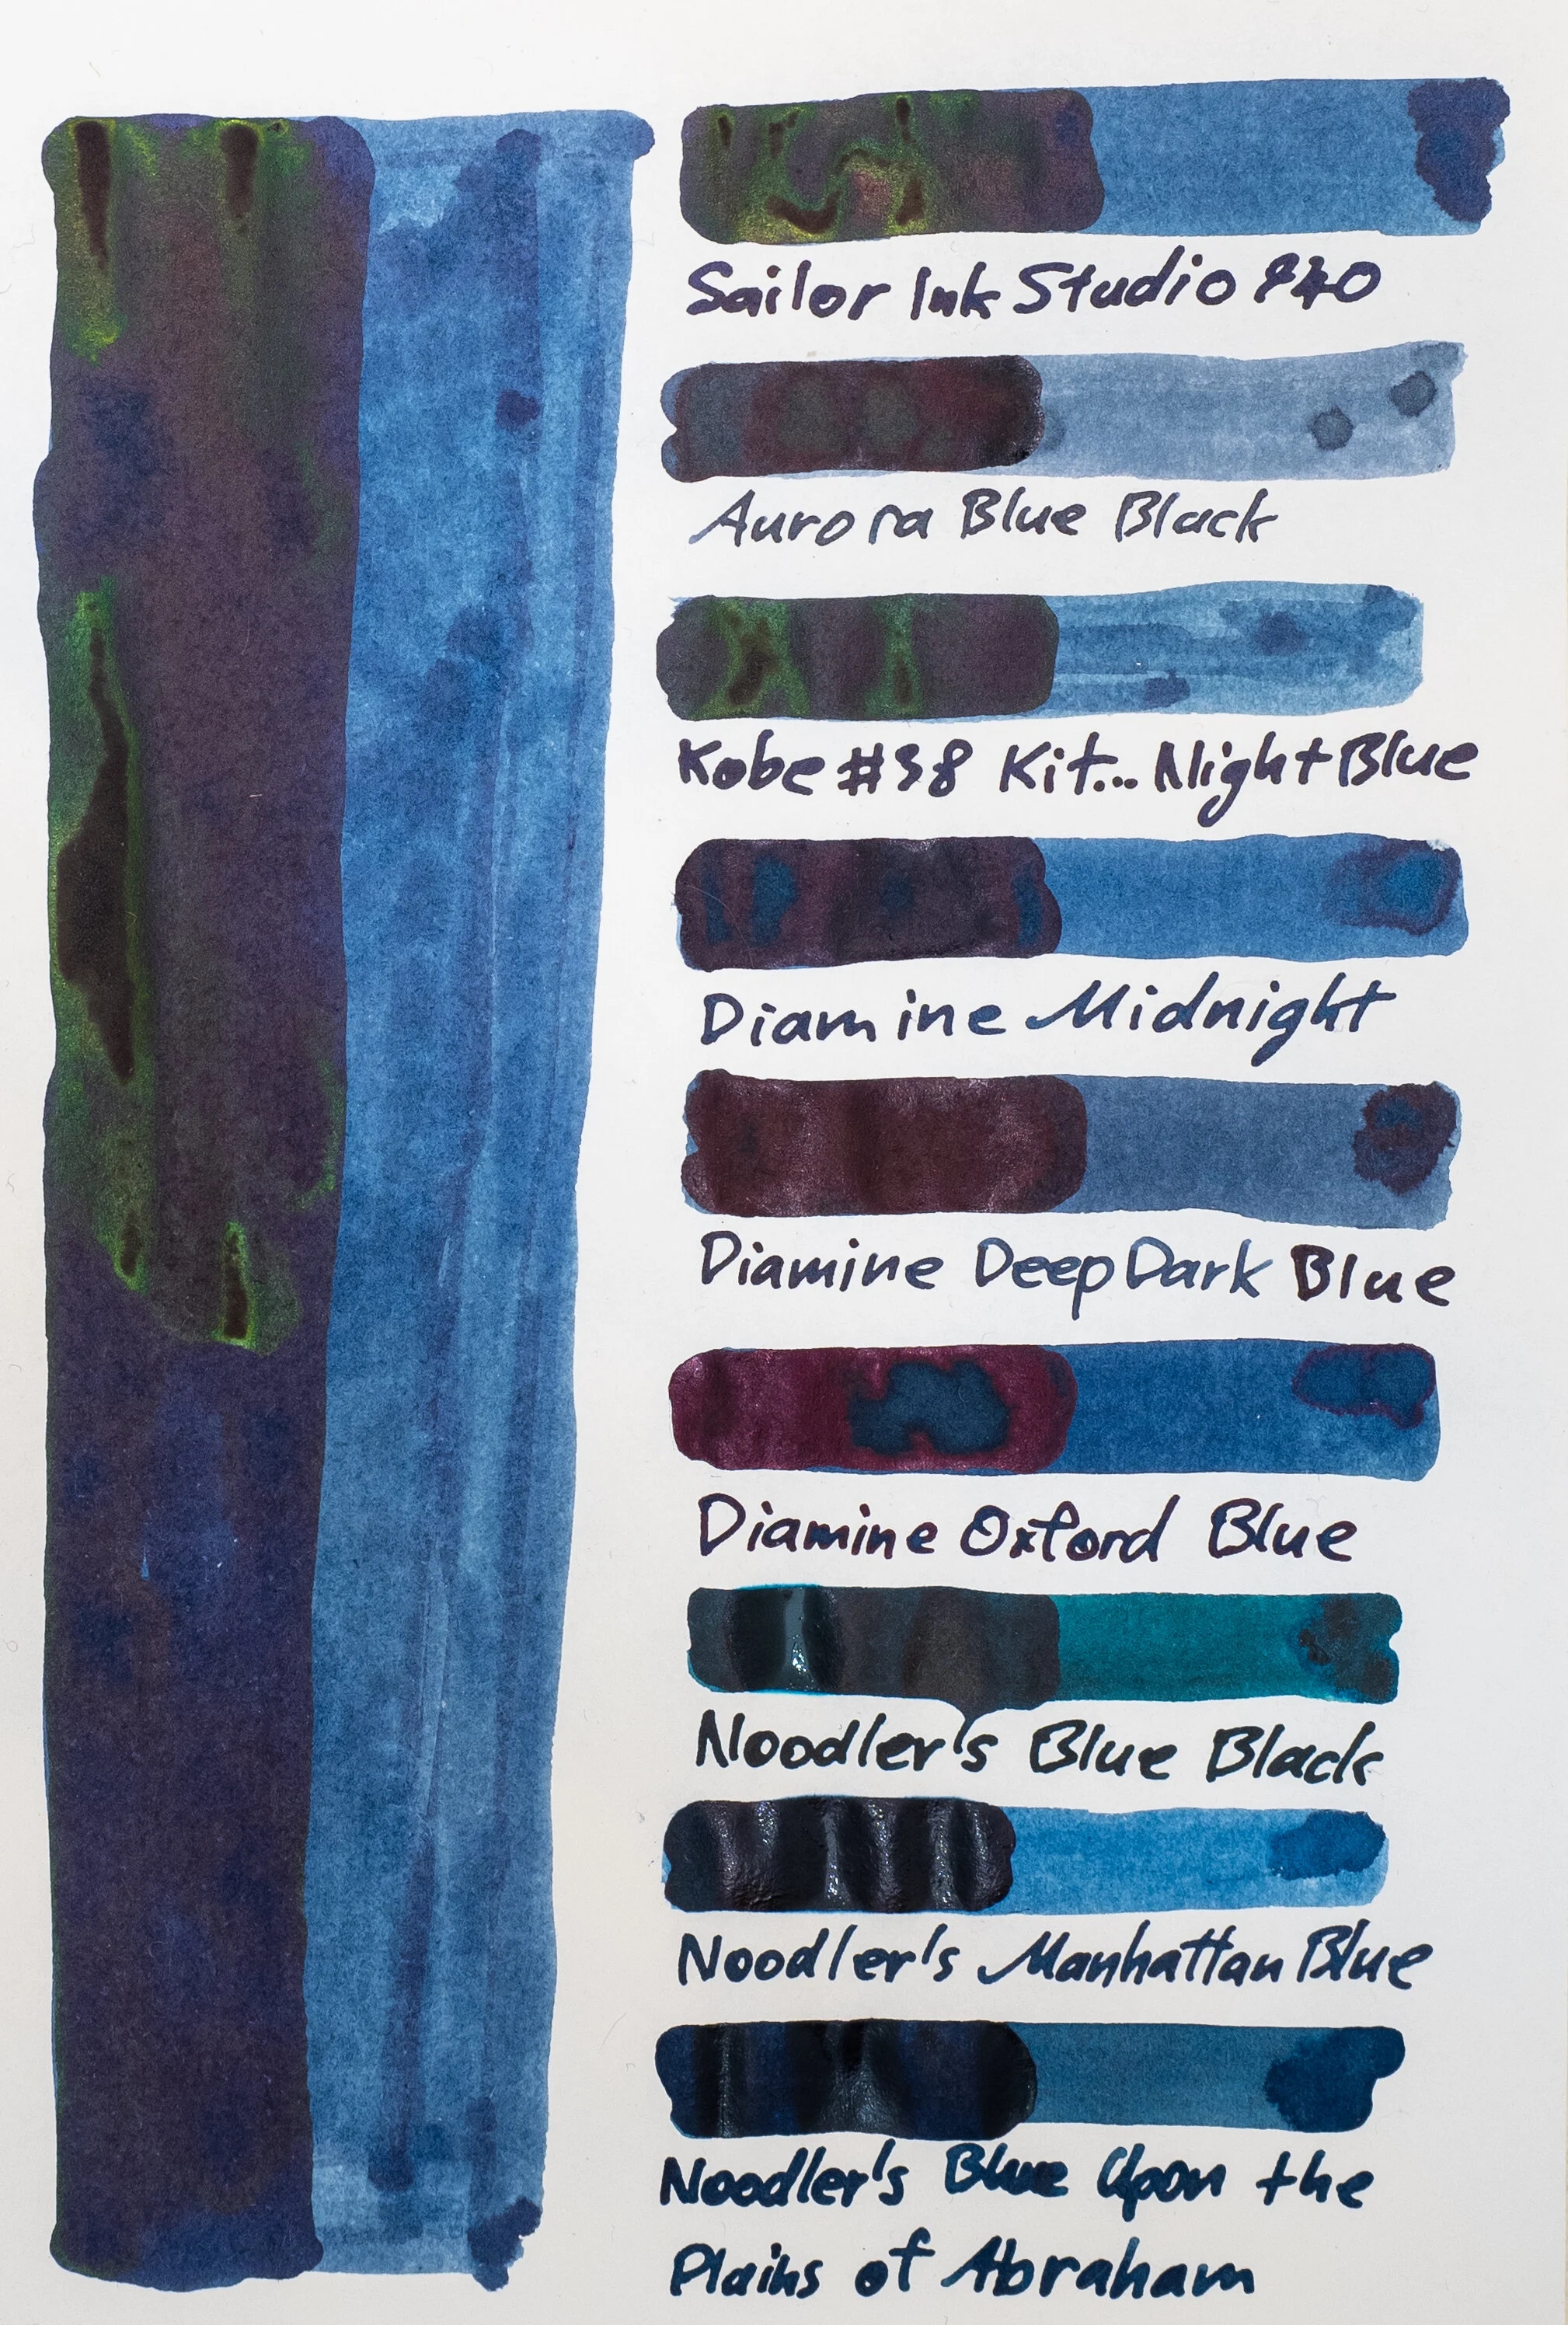 Sailor Ink Studio 840
Aurora Blue Black
Kobe #38 Kit... Night Blue
Diamine Midnight
Diamine Deep Dark Blue
Diamine Oxford Blue
Noodler's Blue Black
Noodler's Manhattan Blue
Noodler's Blue Upon the
Plains of Abraham